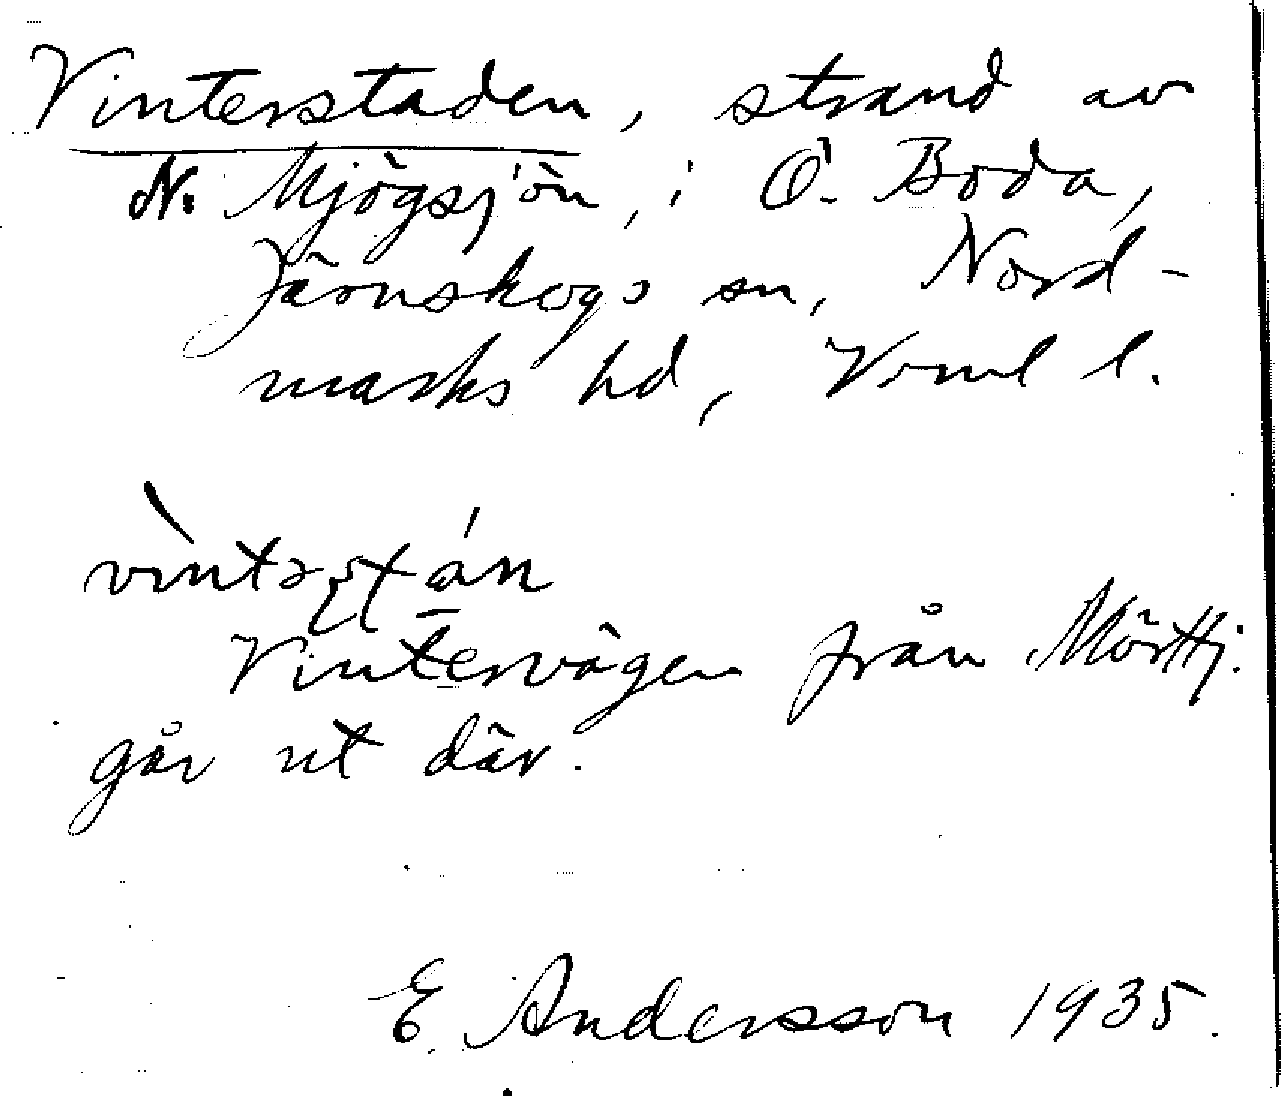 Vinterstaden, strand av
N. Mjögsjön, i Ö. Boda,
Järnskogs sn, Nord-
marks hd, Vrml l.
Vintervägen från Mörttj.
går ut där.
E. Andersson 1935.